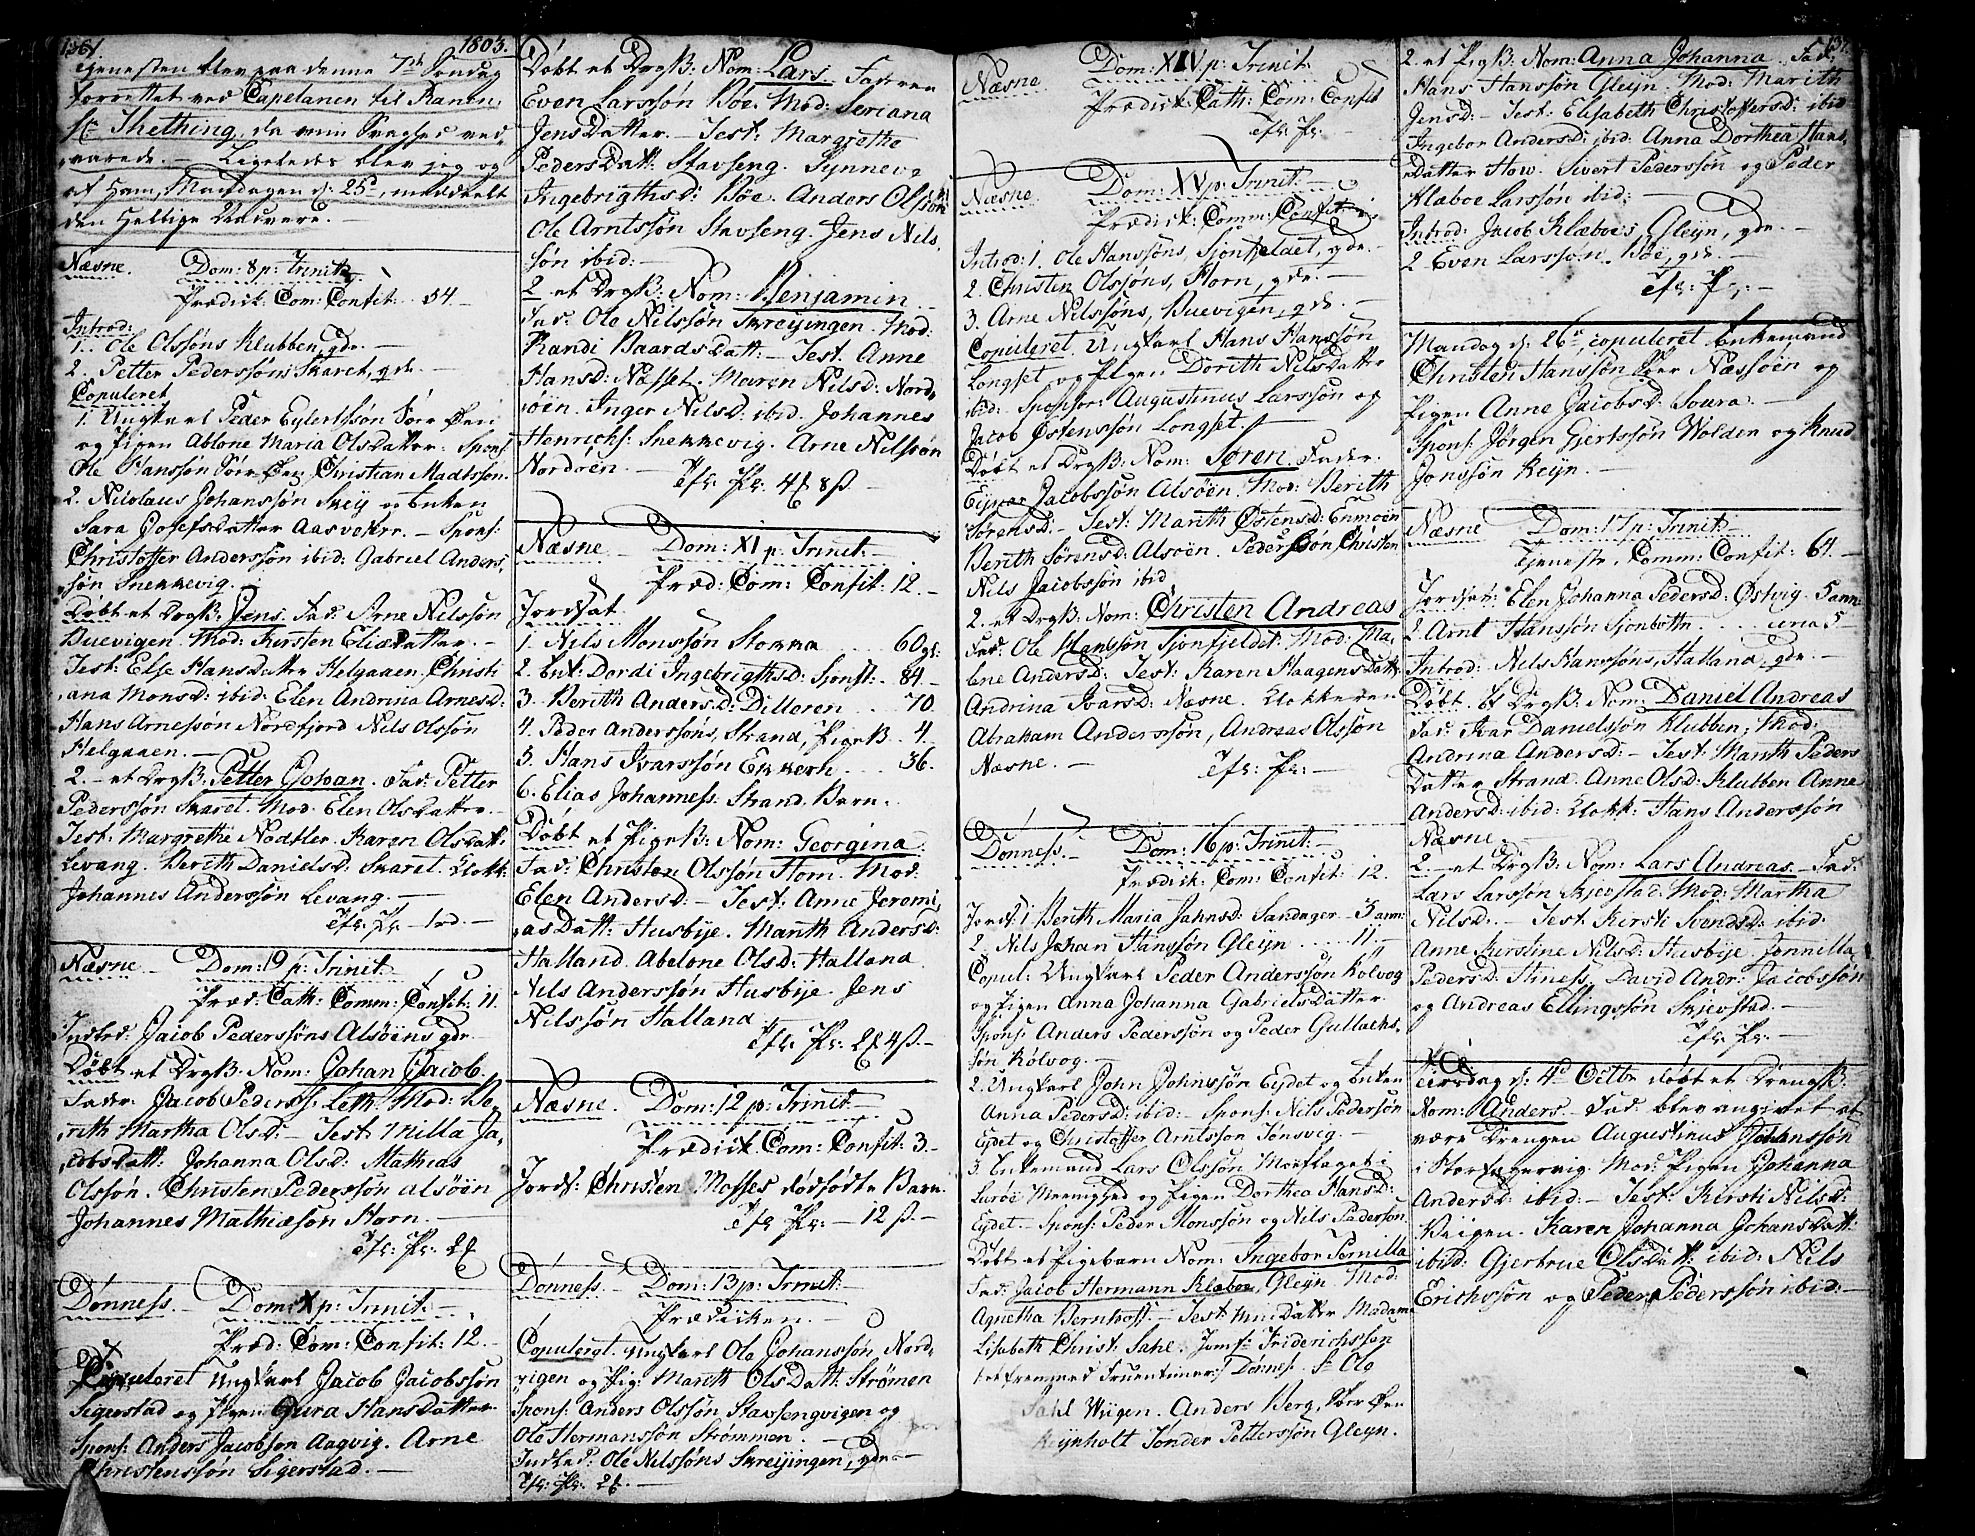 1803.
Tjenesten blev paa denne 7de Søndag
forrettet ved Capelanen til Ranen
Hr Thething, da min Svaghed ved-
varede. — Ligeledes blev jeg og
af Ham, Mandagen d: 25de, meddeelt
den Hellige Nadvere. —
Næsne. Dom: 8 p: Trinit:
Prædick: Com: Confit: 54 —
Introd:
1. Ole Olssøns Klubben, gde. —
2. Petter Pederssøns Skaret, gde. —
Copuleret
1. Ungkarl Peder Eylertssøn Sør Øen
og Pigen Ablone Maria Olsdatter. Spons:
Ole Hanssøn Sør Øen, Christian Madtsson.
2. Nicolaus Johanssøn Skeij og Enken
Sara Josefsdatter Aasvekrr. — Spons:
Christoffer Anderssøn ibid: Gabriel Anders-
søn Snekkevig.
Døbt et DrgB: Jens. Fad: Arne Nilssøn
Buevigen. Mod: Kirsten Eliædatter. —
Test: Else Hansdatter Helgaaen, Christi-
ana Monsd: ibid: Elen Andrina Arnesd:
Hans Arnessøn Nordfjord Nils Olssøn
Helgaaen. —
2. — et DrgB: Petter Johan. Fad: Petter
Pederssøn Skaret. Mod: Elen Olsdatter
Test: Margrethe Nødtler Karen Olsdatt:
Levang. Berith Danielsd: Skaret. Klokk:
Johannes Anderssøn Levang. —
Tfr: Pr —
Næsne Dom: 9 p: Trinit:
Præd: Cath: Comm: Confit: 11.
Introd: Jacob Pederssøns Alsøens gde
Døbt et DrgB: Nom: Johan Jacob.
Fadr: Jacob Pederss: Leth: Mod: Be-
rith Martha Olsd: — Test: Milla Ja-
cobsdatt: Johanna Olsd: Mathias
Olssøn. Christen Pederssøn Alsøen
Johannes Mathiesøn Horn. —
Tfr: Pr:
Dønness. — Dom: X p: Trinit: —
Præd: Com: Confit: 12. —
Copuleret Ungkarl Jacob Jacobssøn
Sigerstad og Pigen Gura Hansdatter
Spons: Anders Jacobsøn Aagvig. Arne
Christenssøn Sigerstad. —
Døbt et DrgB: Nom: Lars. Faderen
Even Larssøn Bøe. Mod: Seriana
Jensdatter. — Test: Margrethe
Pedersdatt: Stavseng. Synneve
Ingebrigthsd: Bøe. Anders Olssøn
Ole Arntssøn Stavseng. Jens Nils-
søn ibid: —
2 et DrgB: Nom: Benjamin
Fad: Ole Nilssøn Skreijingen. Mod:
Randi Baardsdatt: — Test: Anne
Hansd: Næsset. Maren Nilsd: Nord-
øen. Inger Nilsd: ibid. Johannes
Henrichs: Snekkevig. Arne Nilssøn
Nordøen. —
Tfr: Pr: 4 8ß —
Næsne Dom: XI p: Trinit: —
Præd: Com: Confit: 12. —
Jordsat
1. Nils Monssøn Stokka 60
2. Enk: Dordi Ingebrigthsd: Sjonst: 84. —
3. Berith Andersd: Dilleren 70.
4. Peder Anderssøns, Strand, PigeB 4.
5. Hans Ivarssøn Ekkerh 36.
6. Elias Johanness: Strand. Barn.
Døbt et PigeB: Nom: Georgina
Fad: Christen Olssøn Horn. Mod:
Elen Andersd: — Test: Anne Jeromi-
asdatt: Husbije. Marith Andersd:
Halland. Abelone Olsd: Halland
Nils Anderssøn Husbije. Jens
Nilssøn Halland
Tfr: Pr: 2 4ß —
Næsne. Dom: 12 p: Trinit
Prædick: Com: Confit: 3. —
Jords: Christen Mosses dødfødte Barn.
Tfr Pr: — 12 ß. —
Dønness. — Dom: 13 p: Trinit: —
Prædicken. —
Copuleret Ungkarl Ole Johanssøn Nord-
vigen og Pig: Marith Olsdatt: Strømen
Spons: Anders Olssøn Stavsengvigen og
Ole Hermanssøn Strømmen. —
Introd: Ole Nilssøns Skreijingen, gde —
Tfr: Pr: 2
Næsne Dom: XIV p: Trinit:
Prædick: Cath: Com: Confit
Tfr: Pr: —
Næsne Dom: XV p: Trinit: —
Prædick: Comm: Confit:
Introd: 1. Ole Hanssøns, Sjonfieldet, gde. —
2. Christen Olssøns, Horn, gde: —
3. Arne Nilssøns, Buevigen, gde. —
Copuleret. Ungkarl Hans Hanssøn
Longset og Pigen Dorith Nilsdatter
ibid: Sponsor: Augustinus Larssøn og
Jacob Østenssøn Longset. —
Døbt et DrgB: Nom: Søren. Fader.
Ejnar Jacobssøn Alsøen. Mod: Berith
Sørensd: — Test: Marith Østensd: Enmoen
Berith Sørensd: Alsøen. Pederssøn Christen
Nils Jacobssøn ibid
2. et DrgB: Nom: Christen Andreas
Fad: Ole Hanssøn Sjonfjeldet: Mod: Ma-
lene Andersd: Test: Karen Haagensdatt:
Andrina Ivarsd: Næsne. Klokkeren
Abraham Anderssøn, Andreas Olssøn
Næsne. —
Tfr: Pr: —
Dønness. — Dom: 16 p: Trinit: —
Prædick: Com: Confit: 12.
Jords: 1 Berith Maria Jahnsd: Sandager — 3 ann:
2. Nils Johan Hanssøn Gleijn 11. —
Copul: Ungkarl Peder Anderssøn Kølvog
og Pigen Anna Johanna Gabrielsdatter.
Spons: Anders Pederssøn og Peder Gullachs-
søn Kølvog. —
2. Ungkarl John Johnssøn Eijdet og Enken
Anna Pedersd: ibid: — Spons: Nils Pedersøn
Eijdet og Christoffer Arntsson Tønsvig. —
3. Enkemand Lars Olssøn Moeflaget i
Lurøe Meenighed og Pigen Dorthea Hansd:
Eijdet. — Spons: Peder Monssøn og Nils Pedersøn.
Døbt et Pigebarn Nom: Ingebor Pernilla
Fad: Jacob Hermann Klæboe, Gleijn. Mod:
Agnetha Bernhoft. — Test: Min Datter Madam
Lisabeth Christ: Sahl. Jomf: Friderichssen
et fremmed Fruentimer: Dønness. Sr Ole
Sahl Wiigen. Anders Berg, Nørr Øen
Reijnholt Tønder Petterssøn Gleijn.
2. et PigB: Nom: Anna Johanna Fad:
Hans Hanssøn Gleijn. Mod: Marith
Jensd: — Test: Elisabeth Christoffersd: ibid
Ingebor Andersd: ibid: Anna Dorthea Hans-
datter Hov. Sivert Pederssøn og Peder
Klæboe Larssøn ibid:
Introd: Jacob Klæboes, Gleijn, gde. —
2 Even Larssøn. Bøe, gde. —
Tfr: Pr: —
Mandag d: 26de, copuleret Enkemand
Christen Hanssøn Sør Næssøen og
Pigen Anne Jacobsd: Soura. —
Spons: Jørgen Gjertssøn Wolden og Knud
Jonssøn Reijn. —
Næsne Dom: 17 p: Trinit:
Tjeneste, Comm: Confit: 61. —
Jordset: Elen Johanna Pedersd: Østvig. 5 ann
2. Arnt Hanssøn Sjonbottn 5
Introd: Nils Hanssøns, Halland, gde. —
Døbt. Et DrgB: Nom: Daniel Andreas
Fad: Ivar Danielssøn Klubben; Mod:
Andrina Andersd: — Test: Marith Peders-
datter Strand. Anne Olsd: Klubben Anne
Andersd: ibid: Klokk: Hans Anderssøn
Næsne —
2 — et DrgB: Nom: Lars Andreas. Fad:
Lars Larssøn Skjevstad. Mod: Martha
Nilsd: — Test: Kirsti Svendsd: ibid.
Anne Kirstine Nilsd: Husbije. Jonnilla
Pedersd: Stiness. David Andr: Jacobssøn
og Andreas Ellingssøn Skjevstad. —
Tfr: Pr: —
Tirsdag d: 4de Octbr døbt et DrengB:
Nom: Anders. Fad: blev angivet at
være Drengen Augustinus Johanssøn
i Storhagervig. Mod: Pigen Johanna
Andersd: ibid: — Test: Kirsti Nilsd:
Viigen. Karen Johanna Johansdatt:
ibid: Gjertrue Olsdatt: ibid: Nils
Erichssøn og Peder Pederssøn ibid: —